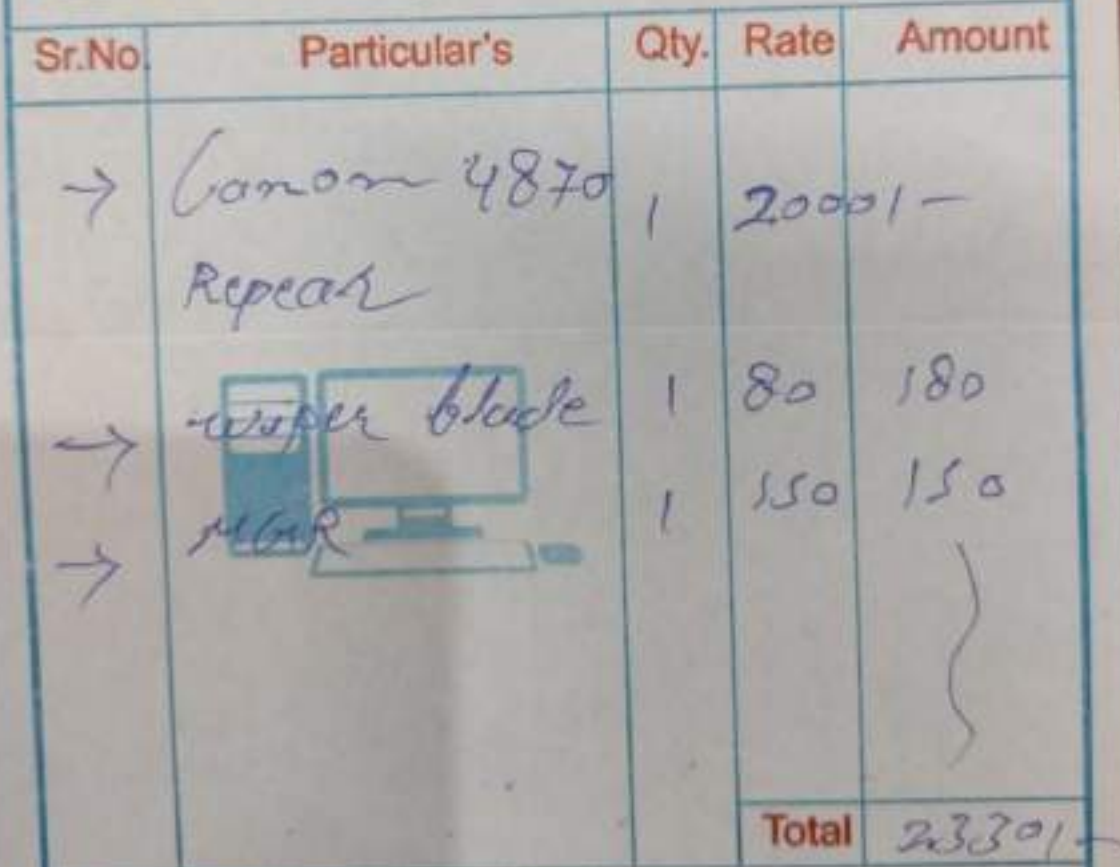 Sr.No. Particular's Qty. Rate Amount
→ Canon 4870 1 2000/-
Repear
→ wiper blade 1 80 180
→ MGR 1 150 150
Total 2330/-